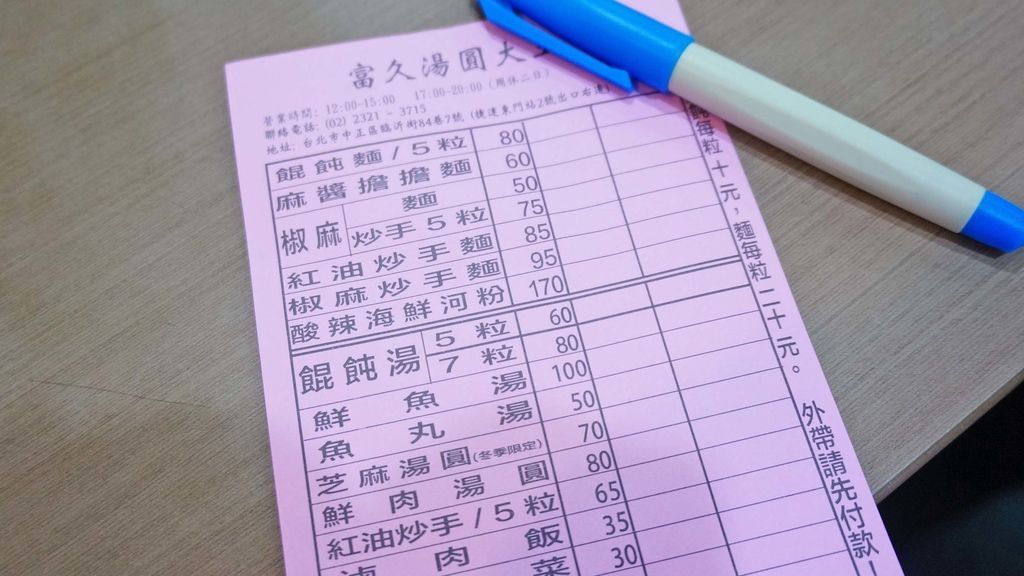 富久湯圓大
營業時間: 12:00-15:00 17:00-20:00 (周休二日)
聯絡電話: (02) 2321 - 3715
地址: 台北市中正區臨沂街84巷7號 (捷運東門站2號出口右邊
餛飩麵/5粒 80
麻醬擔擔麵 60
椒麻 麵 50
炒手5粒 75
紅油炒手麵 85
椒麻炒手麵 95
酸辣海鮮河粉 170
餛飩湯 5粒 60
7粒 80
鮮魚湯 100
魚丸湯 50
芝麻湯圓(冬季限定) 70
鮮肉湯圓 80
紅油炒手/5粒 65
滷肉飯 35
菜 30
每粒十元，麵每粒二十元。 外帶請先付款！